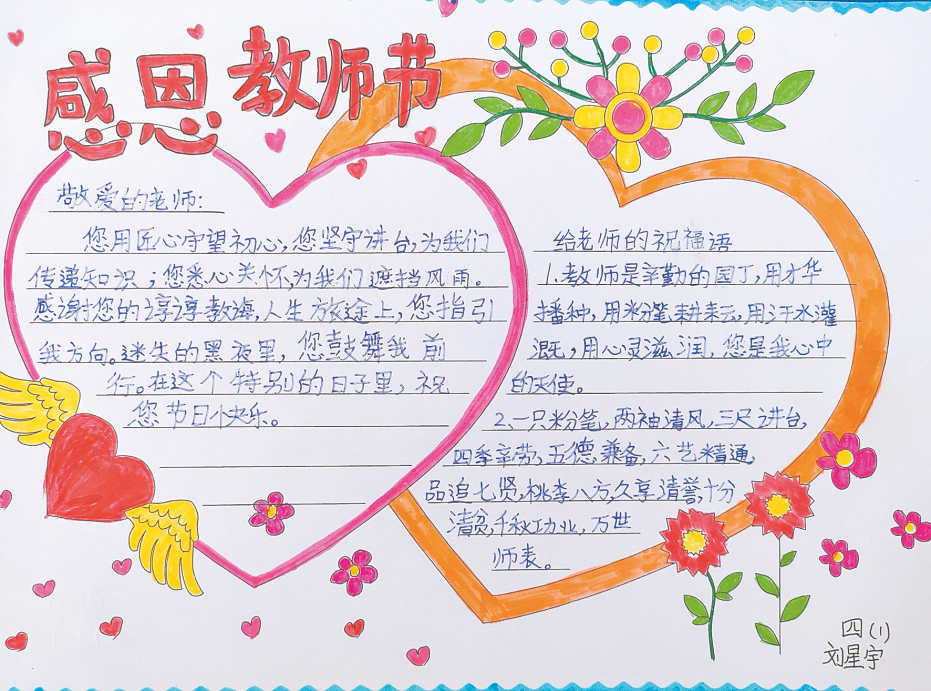 感恩教师节
敬爱的老师:
您用匠心守望初心,您坚守讲台,为我们
传递知识;您悉心关怀,为我们遮挡风雨。
感谢您的谆谆教诲,人生旅途上,您指引
我方向。迷失的黑夜里,您鼓舞我前
行。在这个特别的日子里,祝
您节日快乐。
给老师的祝福语
1.教师是辛勤的园丁,用才华
播种,用粉笔耕耘,用汗水灌
溉,用心灵滋润,您是我心中
的天使。
2.一只粉笔,两袖清风,三尺讲台,
四季辛劳,五德兼备,六艺精通,
品追七贤,桃李八方,久享清誉,十分
清贫,千秋功业,万世
师表。
四(1)
刘星宇